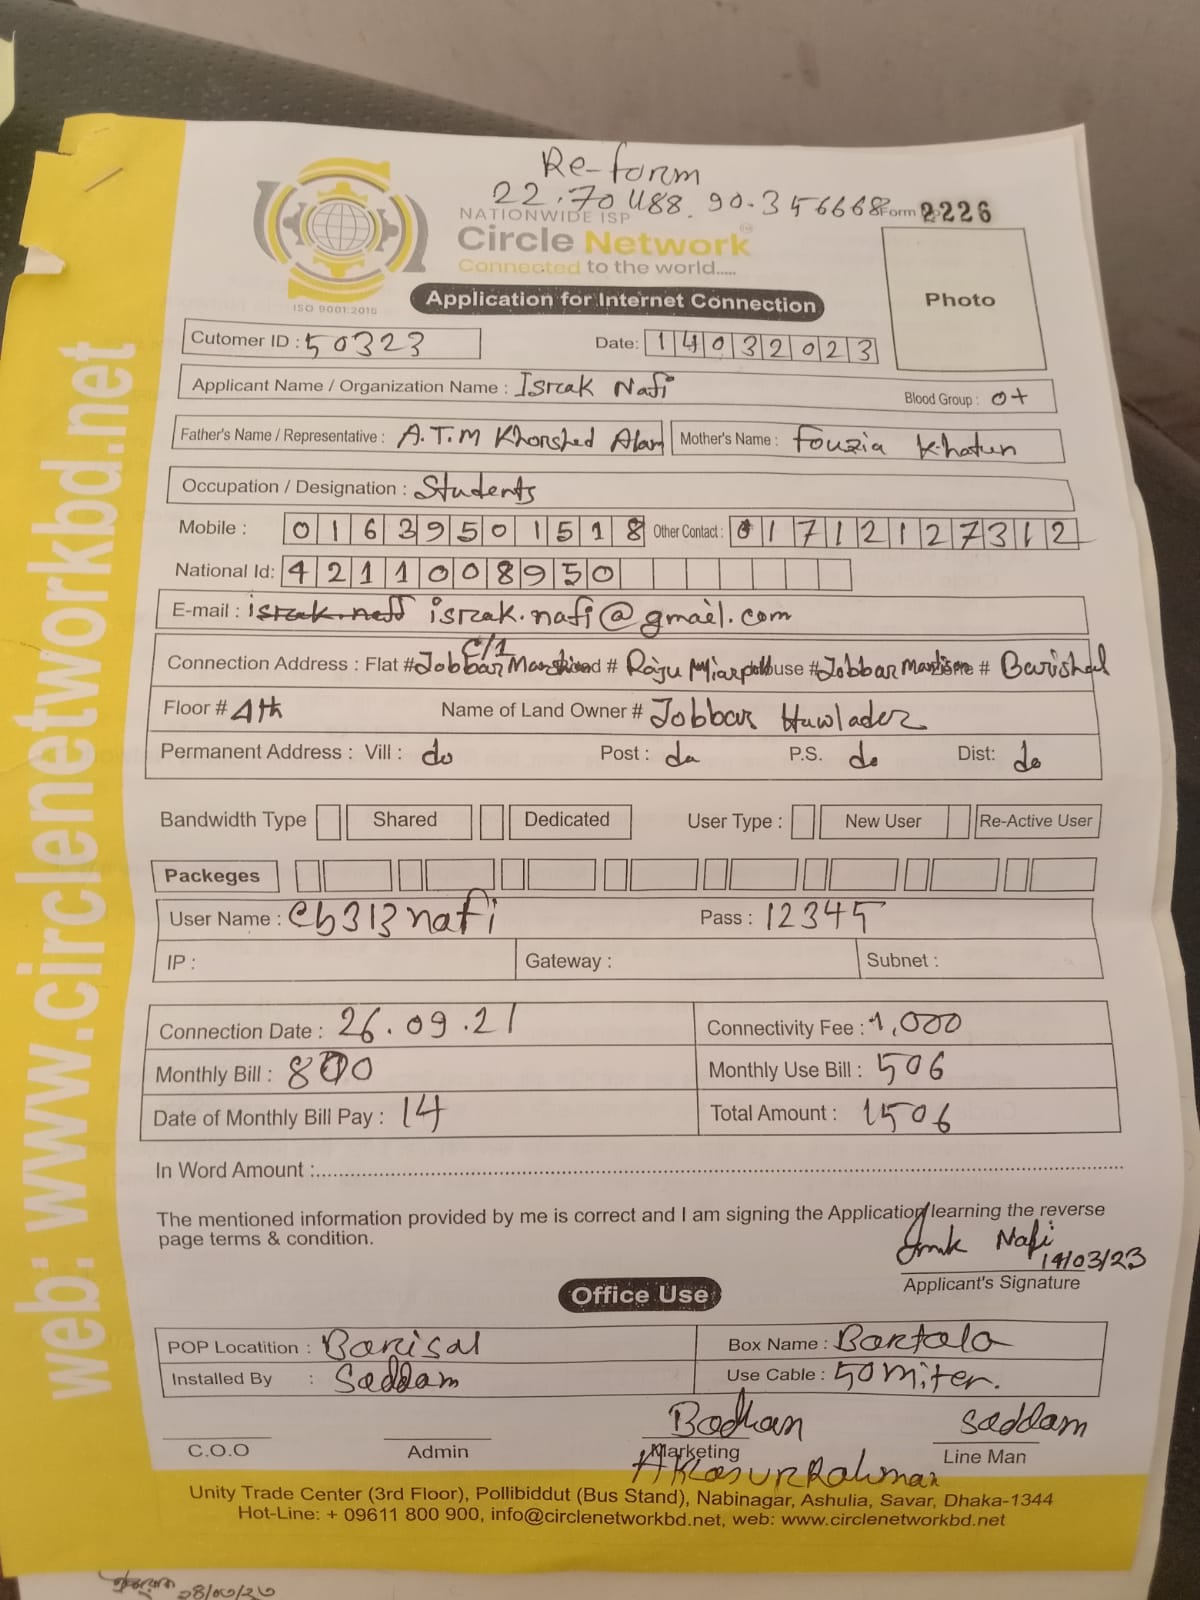 Re-form
22.70488.90.356668
Form 2226
NATIONWIDE ISP
Circle Network
Connected to the world.....
ISO 9001:2015
Application for Internet Connection
Photo
Cutomer ID : 50323
Date: 14032023
Applicant Name / Organization Name : Israk Nafi
Blood Group : O+
Father's Name / Representative : A.T.M Khorshed Alam
Mother's Name : Fouzia Khatun
Occupation / Designation : Students
Mobile : 01639501518
Other Contact : 01712127312
National Id: 4211008950
E-mail : israk.nafi@gmail.com
C/1
Connection Address : Flat # Jobbar # Raju # Jobbar # Barishal
Floor # 4th
Name of Land Owner # Jobbar Hawlader
Permanent Address : Vill : do Post : do P.S. do Dist: do
Bandwidth Type Shared Dedicated User Type : New User Re-Active User
Packeges
User Name : cb313nafi
Pass : 12345
IP : Gateway : Subnet :
Connection Date : 26.09.21
Connectivity Fee : 1,000
Monthly Bill : 800
Monthly Use Bill : 506
Date of Monthly Bill Pay : 14
Total Amount : 1506
In Word Amount :
The mentioned information provided by me is correct and I am signing the Application learning the reverse
page terms & condition.
Nafi
14/03/23
Applicant's Signature
Office Use
POP Locatition : Barisal
Box Name : Bartala
Installed By : Saddam
Use Cable : 50 miter.
Bodhan
Saddam
C.O.O Admin Marketing Line Man
Rahman
Unity Trade Center (3rd Floor), Pollibiddut (Bus Stand), Nabinagar, Ashulia, Savar, Dhaka-1344
Hot-Line: + 09611 800 900, info@circlenetworkbd.net, web: www.circlenetworkbd.net
web: www.circlenetworkbd.net